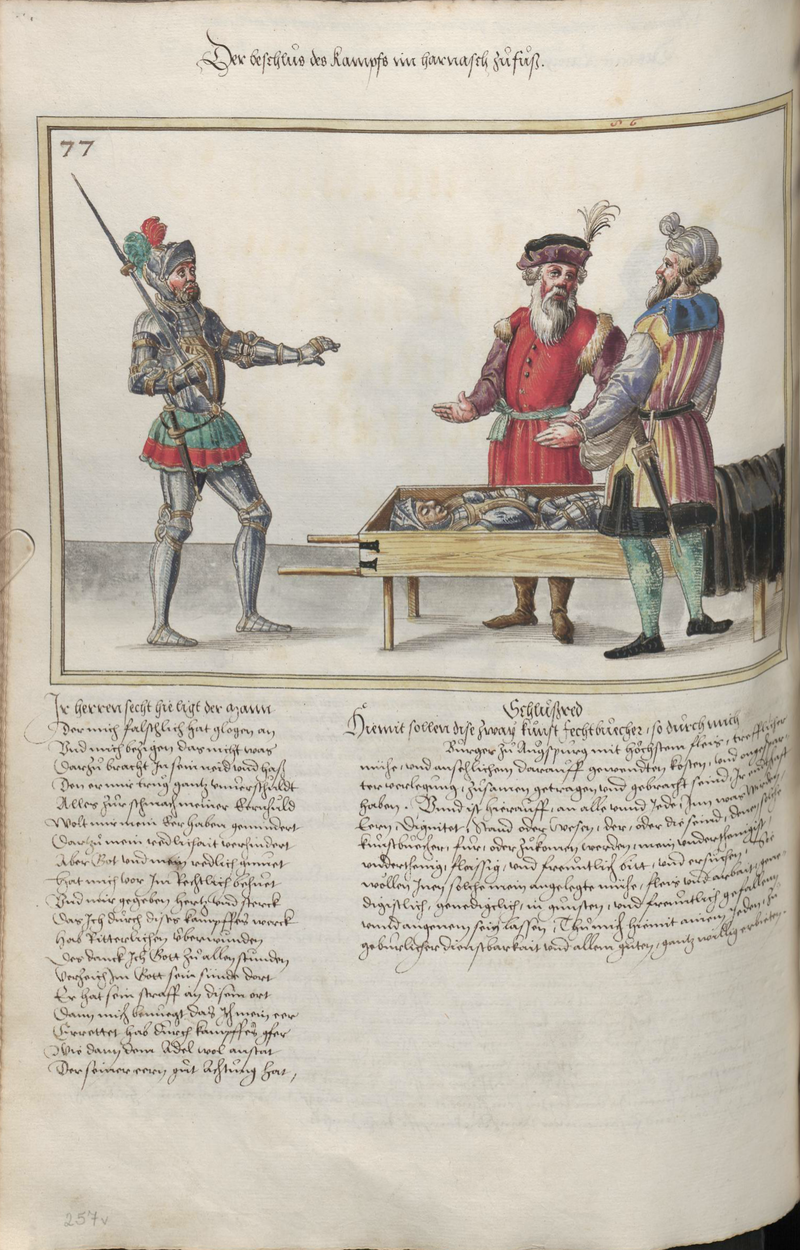 Der beschlus des Kampfs im harnasch zu fuß.
77
Ir herren secht hie ligt der Mann
Der mich falschlich hat glogen an
Und mich bezigen das nicht was
Darzu bracht In sein neid und haß
Den er mir trug gantz unverschuldt
Alles zur schmach meiner Eernhuld
Wolt mir mein Eer haben gemindert
Dartzu mein redlicheit verhindert
Aber Got und mein redlich gmuet
Hat mich vor Im Rechtlich behuet
Und mir gegeben hertz und sterck
Das Ich durch dises kampffes werck
Hab Ritterlichen Überwunden
Des danck Ich Gott zu allen stunden
Verzeich Im Gott sein sünde dort
Er hat sein straff an disem ort
Dann mich benuegt das Ich mein eer
Errettet hab durch kampffes gfer
Wie dann dem Adel wol anstat
Der seiner eern gut Achtung hat,
Schlußred
Hiemit sollen dise zway kunst fechtbuecher, so durch mich
Burger zu Augspurg mit höchstem fleis, trefflicher
muhe, und ansehlichem darauff gewendten kosten, und
ter verlegung, zusamen getragen und gebracht seind, Ir
haben. Und ist hierauff, an alle und Jede, Inn was
Eeren, Dignitet, Stand oder Wesen, der, oder die seind, denen solche
kunstbuecher, fur, oder zukomen werden, mein underthenigist,
underthenig, fleissig, und freuntlich bitt, und ersuchen, Sie
wollen Inen solche mein angelegte muhe, fleis und arbeit, gene
digistlich, genediglich, in gunsten, und freuntlich gefallen
unnd angenem sein lassen, Thu mich hiemit ainem Jeden, zu
geburlicher dienstbarkait und allem guten, gantz willig erbieten.
257v